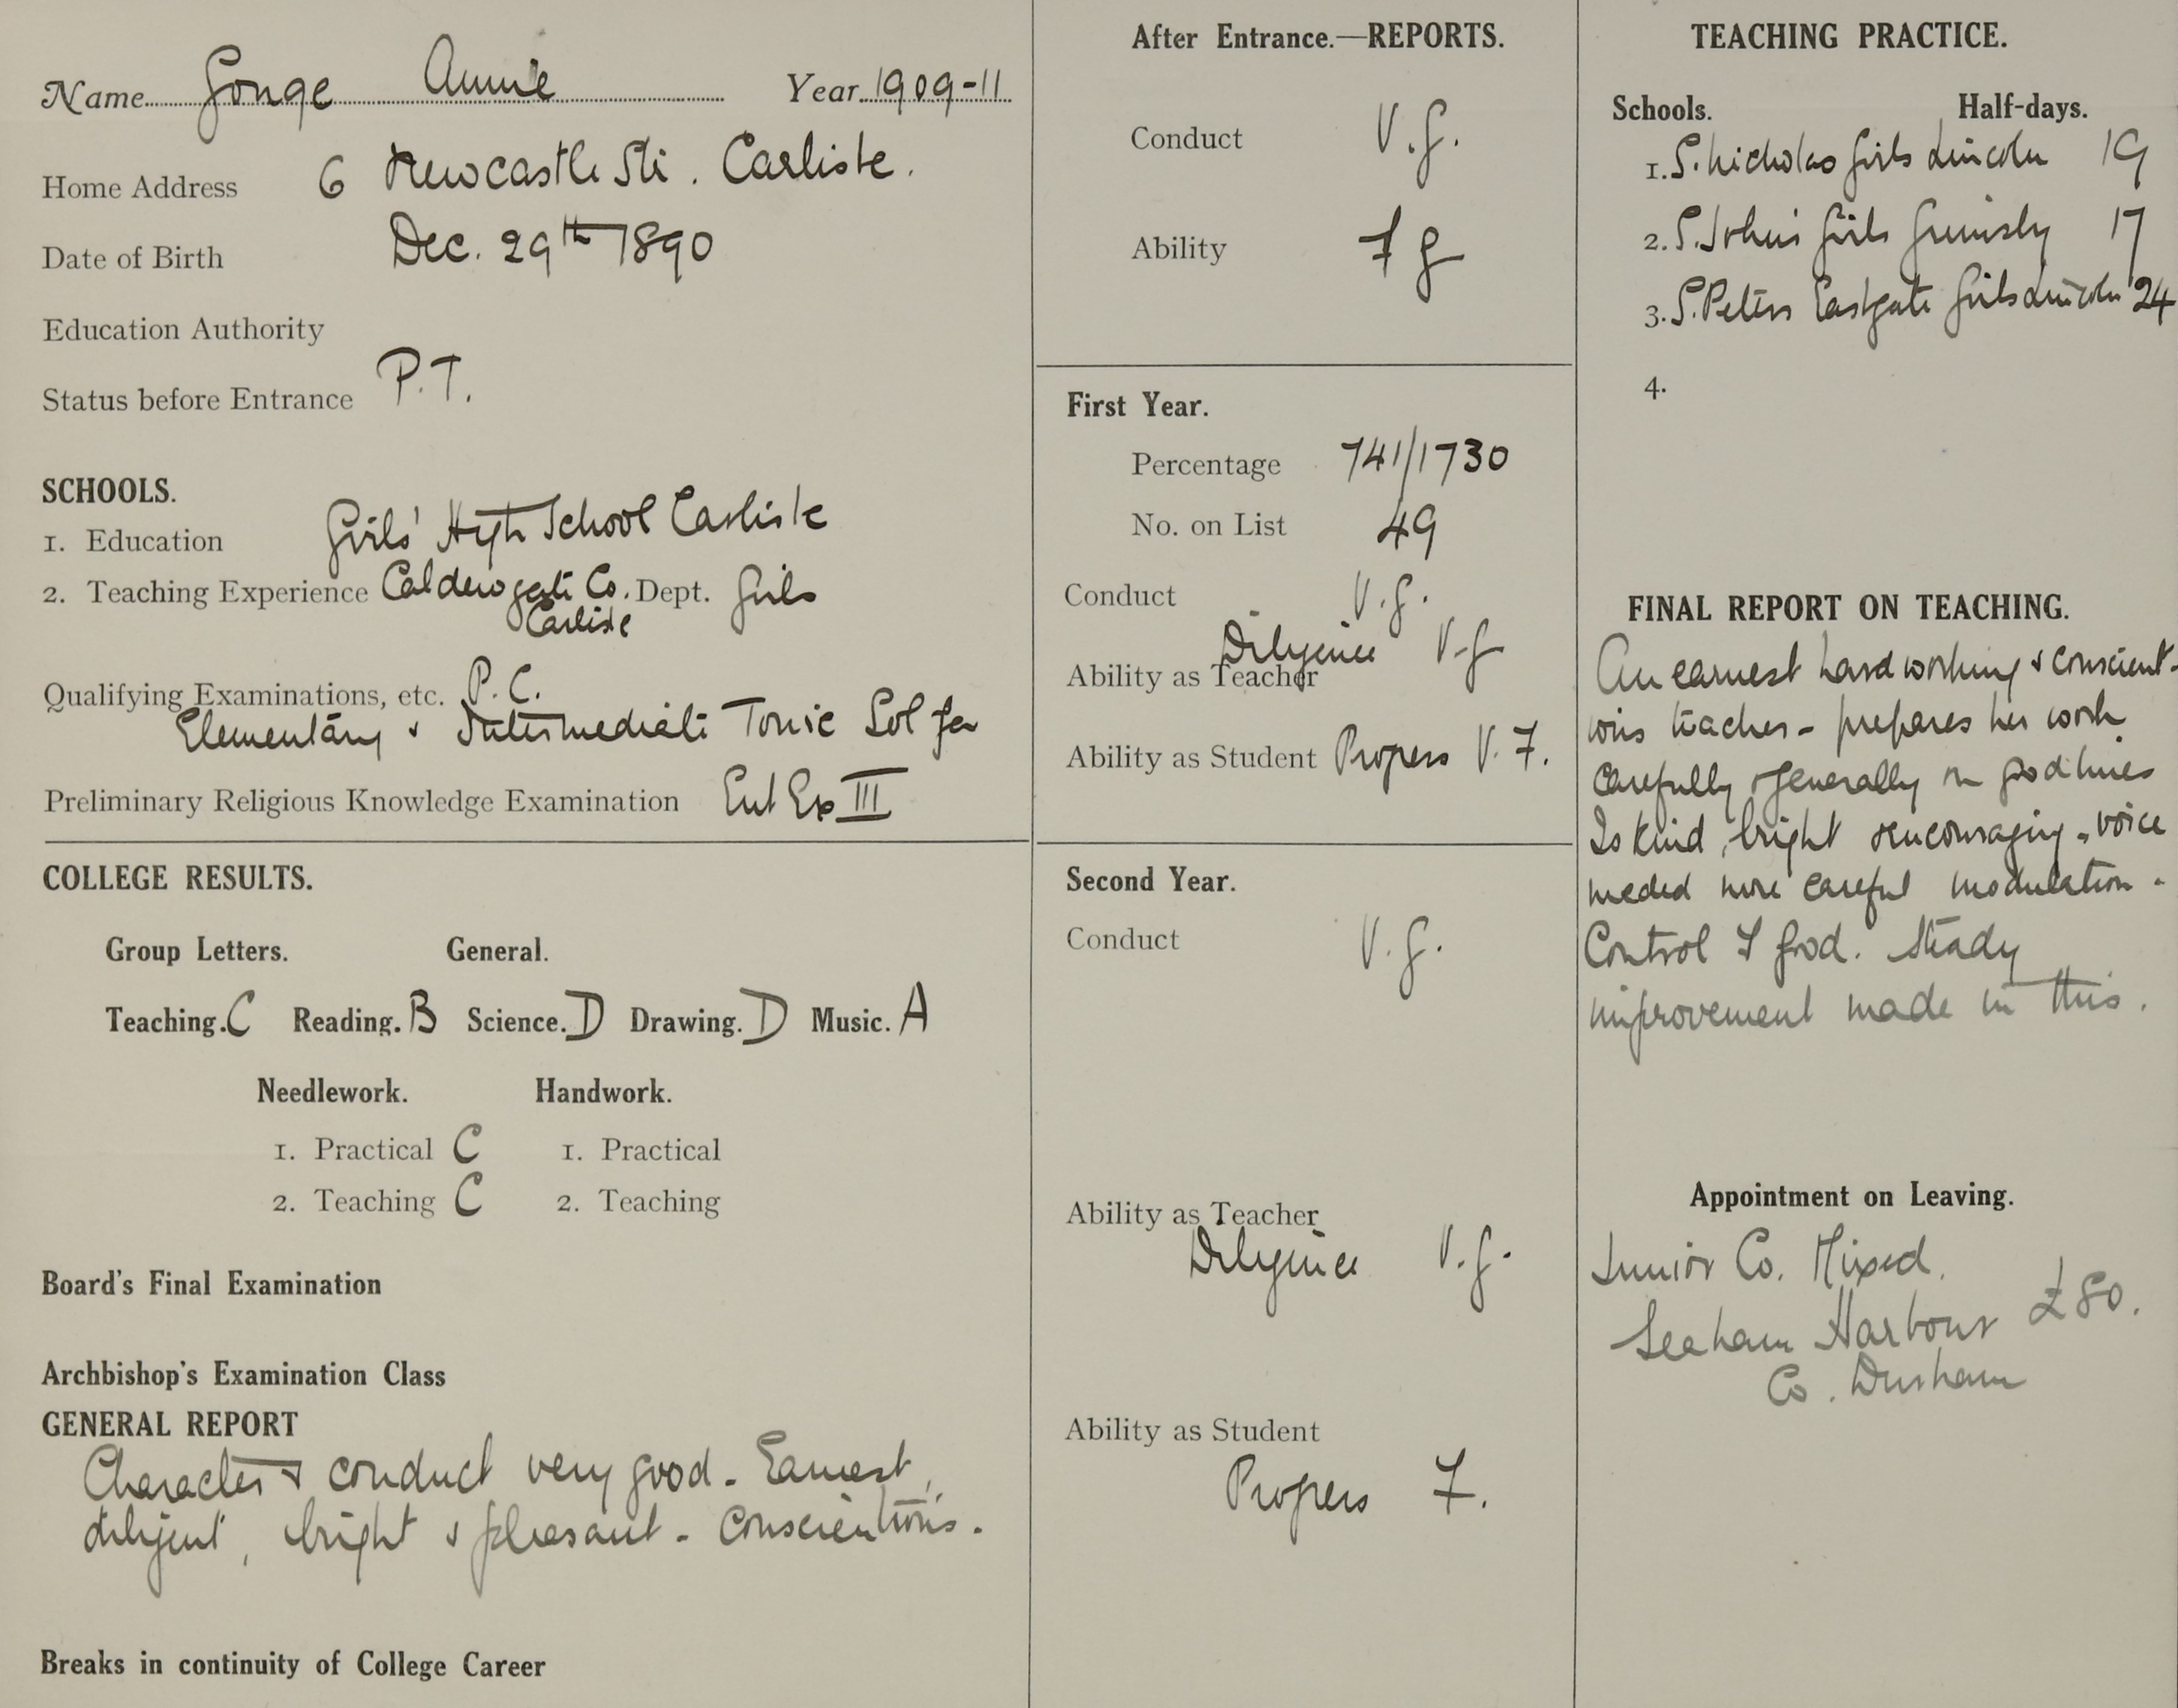 Name Gonge Annie Year 1909-11
Home Address 6 Newcastle St. Carlisle.
Date of Birth Dec. 29th 1890
Education Authority
Status before Entrance P.T.
SCHOOLS.
1. Education Girls' High School Carlisle
2. Teaching Experience Caldewgate Co. Dept. Girls
Carlisle
Qualifying Examinations, etc. P.C.
Elementary & Intermediate Tonic Sol fa
Preliminary Religious Knowledge Examination Ent Ex III
COLLEGE RESULTS.
Group Letters. General.
Teaching. C Reading. B Science. D Drawing. D Music. A
Needlework. Handwork.
1. Practical C 1. Practical
2. Teaching C 2. Teaching
Board's Final Examination
Archbishop's Examination Class
GENERAL REPORT
Character & conduct very good. Earnest,
diligent, bright & pleasant - conscientious.
Breaks in continuity of College Career
After Entrance.—REPORTS.
Conduct V.g.
Ability F g
First Year.
Percentage 741/1730
No. on List 49
Conduct V.g.
Diligence V.g
Ability as Teacher
Ability as Student Progress V.F.
Second Year.
Conduct V.g.
Ability as Teacher
Diligence V.g.
Ability as Student
Progress F.
TEACHING PRACTICE.
Schools. Half-days.
1. S. Nicholas Girls Lincoln 19
2. S. John's Girls Grimsby 17
3. S. Peters Eastgate Girls Lincoln 24
4.
FINAL REPORT ON TEACHING.
An earnest hard working & conscient-
ious teacher - prepares her work
carefully & generally on good lines
Is kind, bright & encouraging - voice
needed more careful modulation.
Control F good. Steady
improvement made in this.
Appointment on Leaving.
Junior Co. Mixed.
Seaham Harbour £80.
Co. Durham